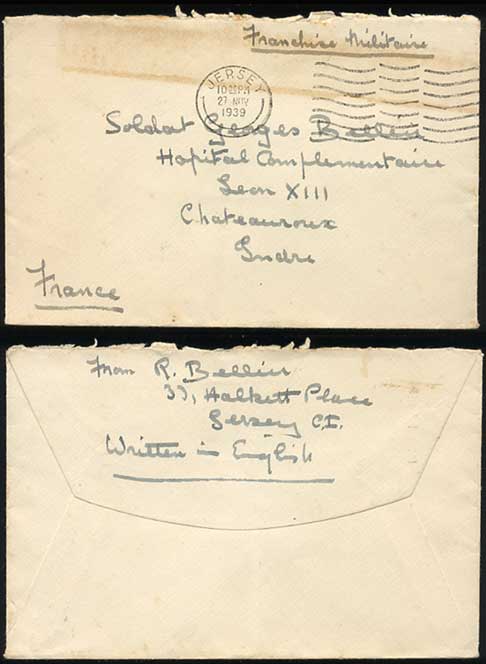 Franchise Militaire
JERSEY
10 PM
27 NOV
1939
Soldat Georges Bellein
Hopital Complementaire
Leon XIII
Chateauroux
Indre
France
From R. Bellein
Halkett Place
Jersey C.I.
Written in English